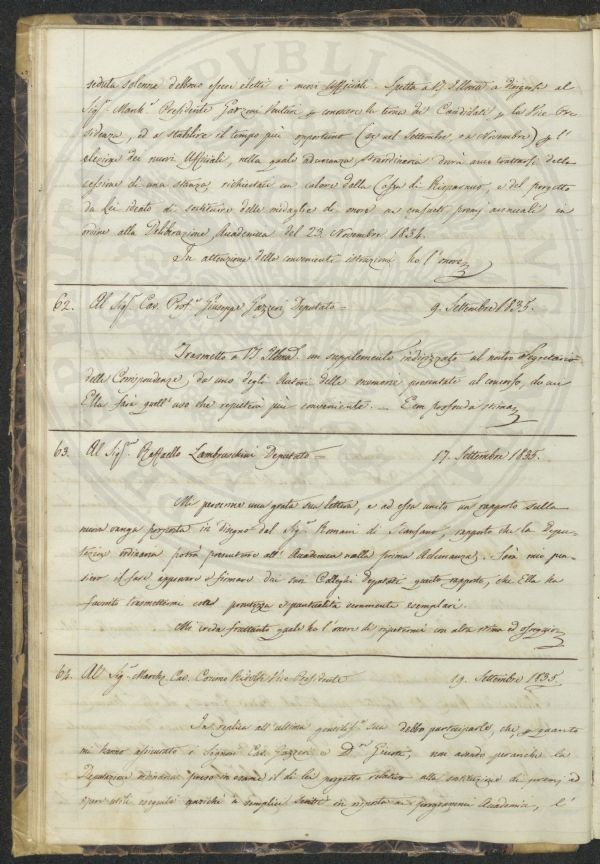 seduta solenne debbono esser eletti i nuovi Uffiziali. Spetta a VS Illma a dirigersi al
Sigr. Marche. Presidente Garzoni Venturi p conoscere la terna dei Candidati p la Vice Pre
sidenza, ed a stabilire il tempo più opportuno (se nel Settembre, o a Novembre) p l'
elezione dei nuovi Uffiziali, nella quale adunanza straordinaria dovrà anco trattarsi della
cessione di una stanza, richiestaci con calore dalla Cassa di Risparmio, e del progetto
da Lei ideato di sostituire delle medaglie di onore ai consueti premj annuali in
ordine alla Deliberazione Accademica del 23. Novembre 1834.
In attenzione delle convenienti istruzioni ho l'onore
62. Al Sigr. Cav. Profr. Giuseppe Gazzeri Deputato = 9. Settembre 1835.
Trasmetto a VS Illma. un supplemento indirizzato al nostro Segretario
delle Corrispondenze, da uno degli Autori delle memorie presentate al concorso, di cui
Ella farà quell'uso che reputerà più conveniente. _ E con profonda stima
63. Al Sigr. Raffaello Lambruschini Deputato = 17. Settembre 1835.
Mi pervenne una grata sua lettera, e ad essa unito un rapporto sulla
nuova vanga proposta in disegno dal Sigr. Romani di Scansano, rapporto che la Depu-
tazione ordinaria potrà presentare all'Accademia nella prima Adunanza. Sarà mio pen-
siero il fare approvare e firmare dai suoi Colleghi Deputati questo rapporto, che Ella ha
favorito trasmettermi colla prontezza e puntualità veramente esemplari.
Mi creda frattanto quale ho l'onore di ripetermi con alta stima ed ossequio
64. Al Sigr. Marche. Cav. Cosimo Ridolfi Vice Presidente 19. Settembre 1835.
In replica all'ultima gentilissa. sua debbo parteciparle, che p quanto
mi hanno assicurato i Signori Cav. Gazzeri e Dr. Giusti, non avendo peranche la
Deputazione ordinaria preso in esame il di lei progetto relativo alla sostituzione di premj ad
opere utili eseguite anzichè a semplici scritti in risposta ai programmi Accademici, l'